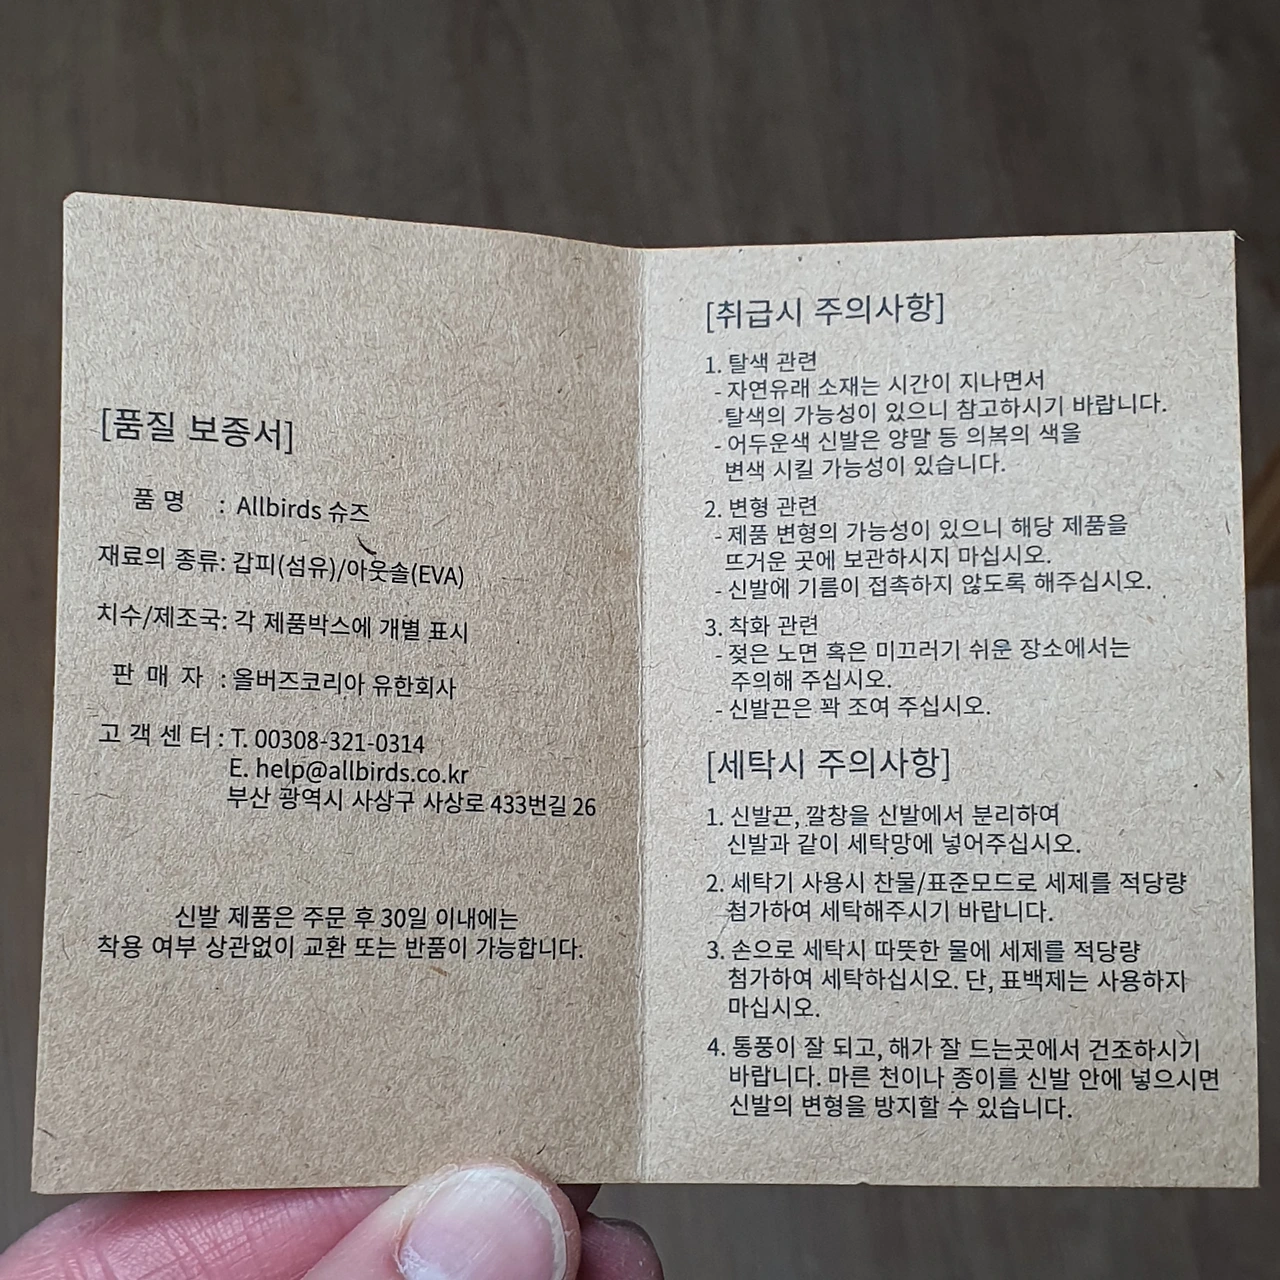 [품질 보증서]
품 명 : Allbirds 슈즈
재료의 종류: 갑피(섬유)/아웃솔(EVA)
치수/제조국: 각 제품박스에 개별 표시
판 매 자 : 올버즈코리아 유한회사
고 객 센 터 : T. 00308-321-0314
E. help@allbirds.co.kr
부산 광역시 사상구 사상로 433번길 26
신발 제품은 주문 후 30일 이내에는
착용 여부 상관없이 교환 또는 반품이 가능합니다.
[취급시 주의사항]
1. 탈색 관련
- 자연유래 소재는 시간이 지나면서
탈색의 가능성이 있으니 참고하시기 바랍니다.
- 어두운색 신발은 양말 등 의복의 색을
변색 시킬 가능성이 있습니다.
2. 변형 관련
- 제품 변형의 가능성이 있으니 해당 제품을
뜨거운 곳에 보관하시지 마십시오.
- 신발에 기름이 접촉하지 않도록 해주십시오.
3. 착화 관련
- 젖은 노면 혹은 미끄러기 쉬운 장소에서는
주의해 주십시오.
- 신발끈은 꽉 조여 주십시오.
[세탁시 주의사항]
1. 신발끈, 깔창을 신발에서 분리하여
신발과 같이 세탁망에 넣어주십시오.
2. 세탁기 사용시 찬물/표준모드로 세제를 적당량
첨가하여 세탁해주시기 바랍니다.
3. 손으로 세탁시 따뜻한 물에 세제를 적당량
첨가하여 세탁하십시오. 단, 표백제는 사용하지
마십시오.
4. 통풍이 잘 되고, 해가 잘 드는곳에서 건조하시기
바랍니다. 마른 천이나 종이를 신발 안에 넣으시면
신발의 변형을 방지할 수 있습니다.